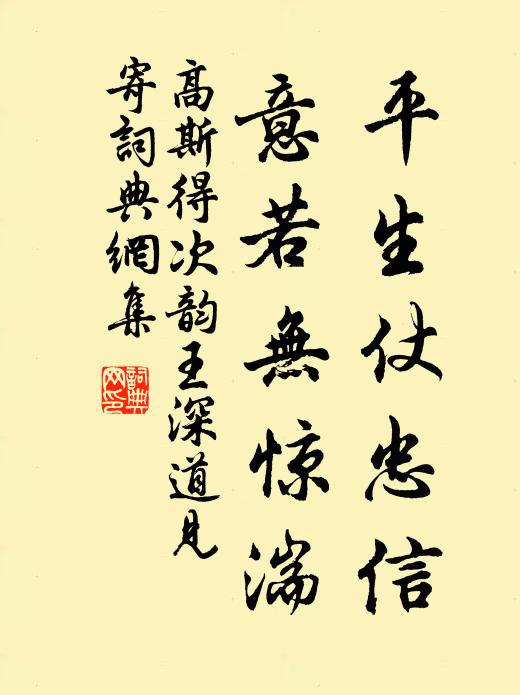 平生仗忠信
意若無惊湍
高斯得次韵王深道見
寄詞典網集
詞典網印